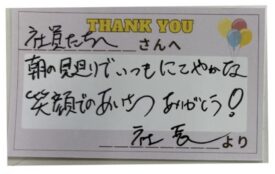 THANK YOU
社員たちへ さんへ
朝の見廻りでいつもにこやかな
笑顔でのあいさつありがとう!
社長より